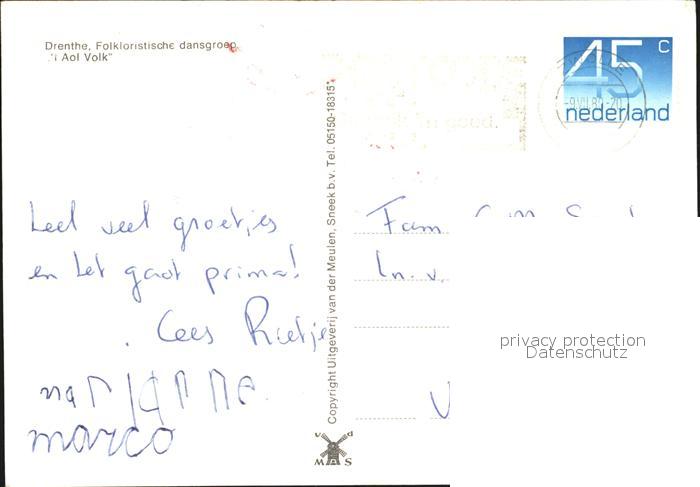 Drenthe, Folkloristische dansgroep
"'t Aol Volk"
45 c
nederland
Heel veel groetjes
en het gaat prima!
Cees Rietje
marianne
marco
Copyright Uitgeverij van der Meulen, Sneek b.v. Tel. 05150-18315*
Fam
in goed.
privacy protection
Datenschutz
v d
M S